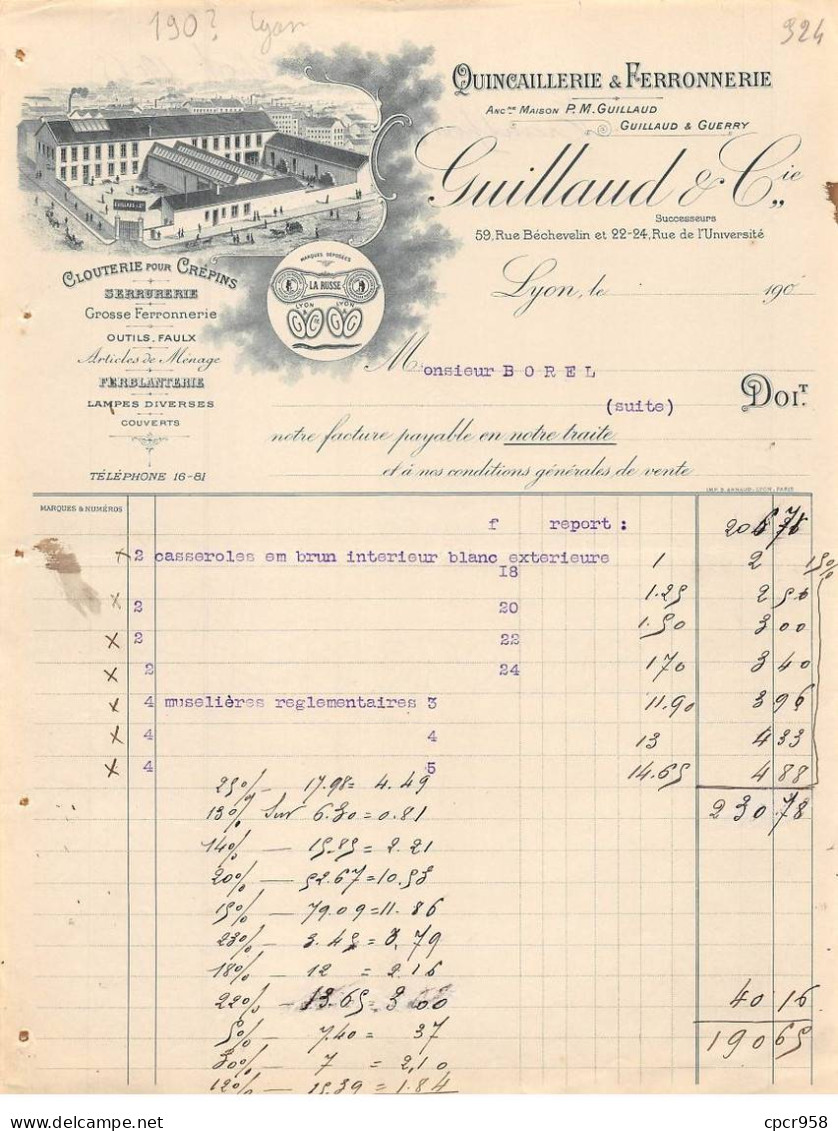 190? Lyon
924
QUINCAILLERIE & FERRONNERIE
ANCNE MAISON P.M. GUILLAUD
GUILLAUD & GUERRY
Guillaud & Cie
Successeurs
59, Rue Béchevelin et 22-24, Rue de l'Université
Lyon, le 190
GUILLAUD & Cie
MARQUES DÉPOSÉES
LA RUSSE
LYON LYON
G & Cie G & G
CLOUTERIE POUR CRÉPINS
SERRURERIE
Grosse Ferronnerie
OUTILS, FAULX
Articles de Ménage
FERBLANTERIE
LAMPES DIVERSES
COUVERTS
TÉLÉPHONE 16-81
Monsieur BOREL
(suite)
DOIT.
notre facture payable en notre traite
et à nos conditions générales de vente
IMP. B. ARNAUD, LYON, PARIS
MARQUES & NUMÉROS
f report : 206 78
x 2 casseroles em brun interieur blanc exterieure 1 2 15%
18
x 2 20 1.25 2 50
x 2 22 1.50 3 00
x 2 24 170 3 40
x 4 muselières reglementaires 3 11.90 3 96
x 4 4 13 4 33
x 4 5 14.65 4 88
25% — 17.98 = 4.49
230 78
13% Sur 6.30 = 0.81
14% — 15.85 = 2.21
20% — 52.67 = 10.53
15% — 79.09 = 11.86
23% — 3.45 = 0,79
18% — 12 = 2.16
22% — 13.65 = 3 00
40 16
5% — 7.40 = 37
190 65
30% — 7 = 2,10
12% — 15.39 = 1.84
cpcr958